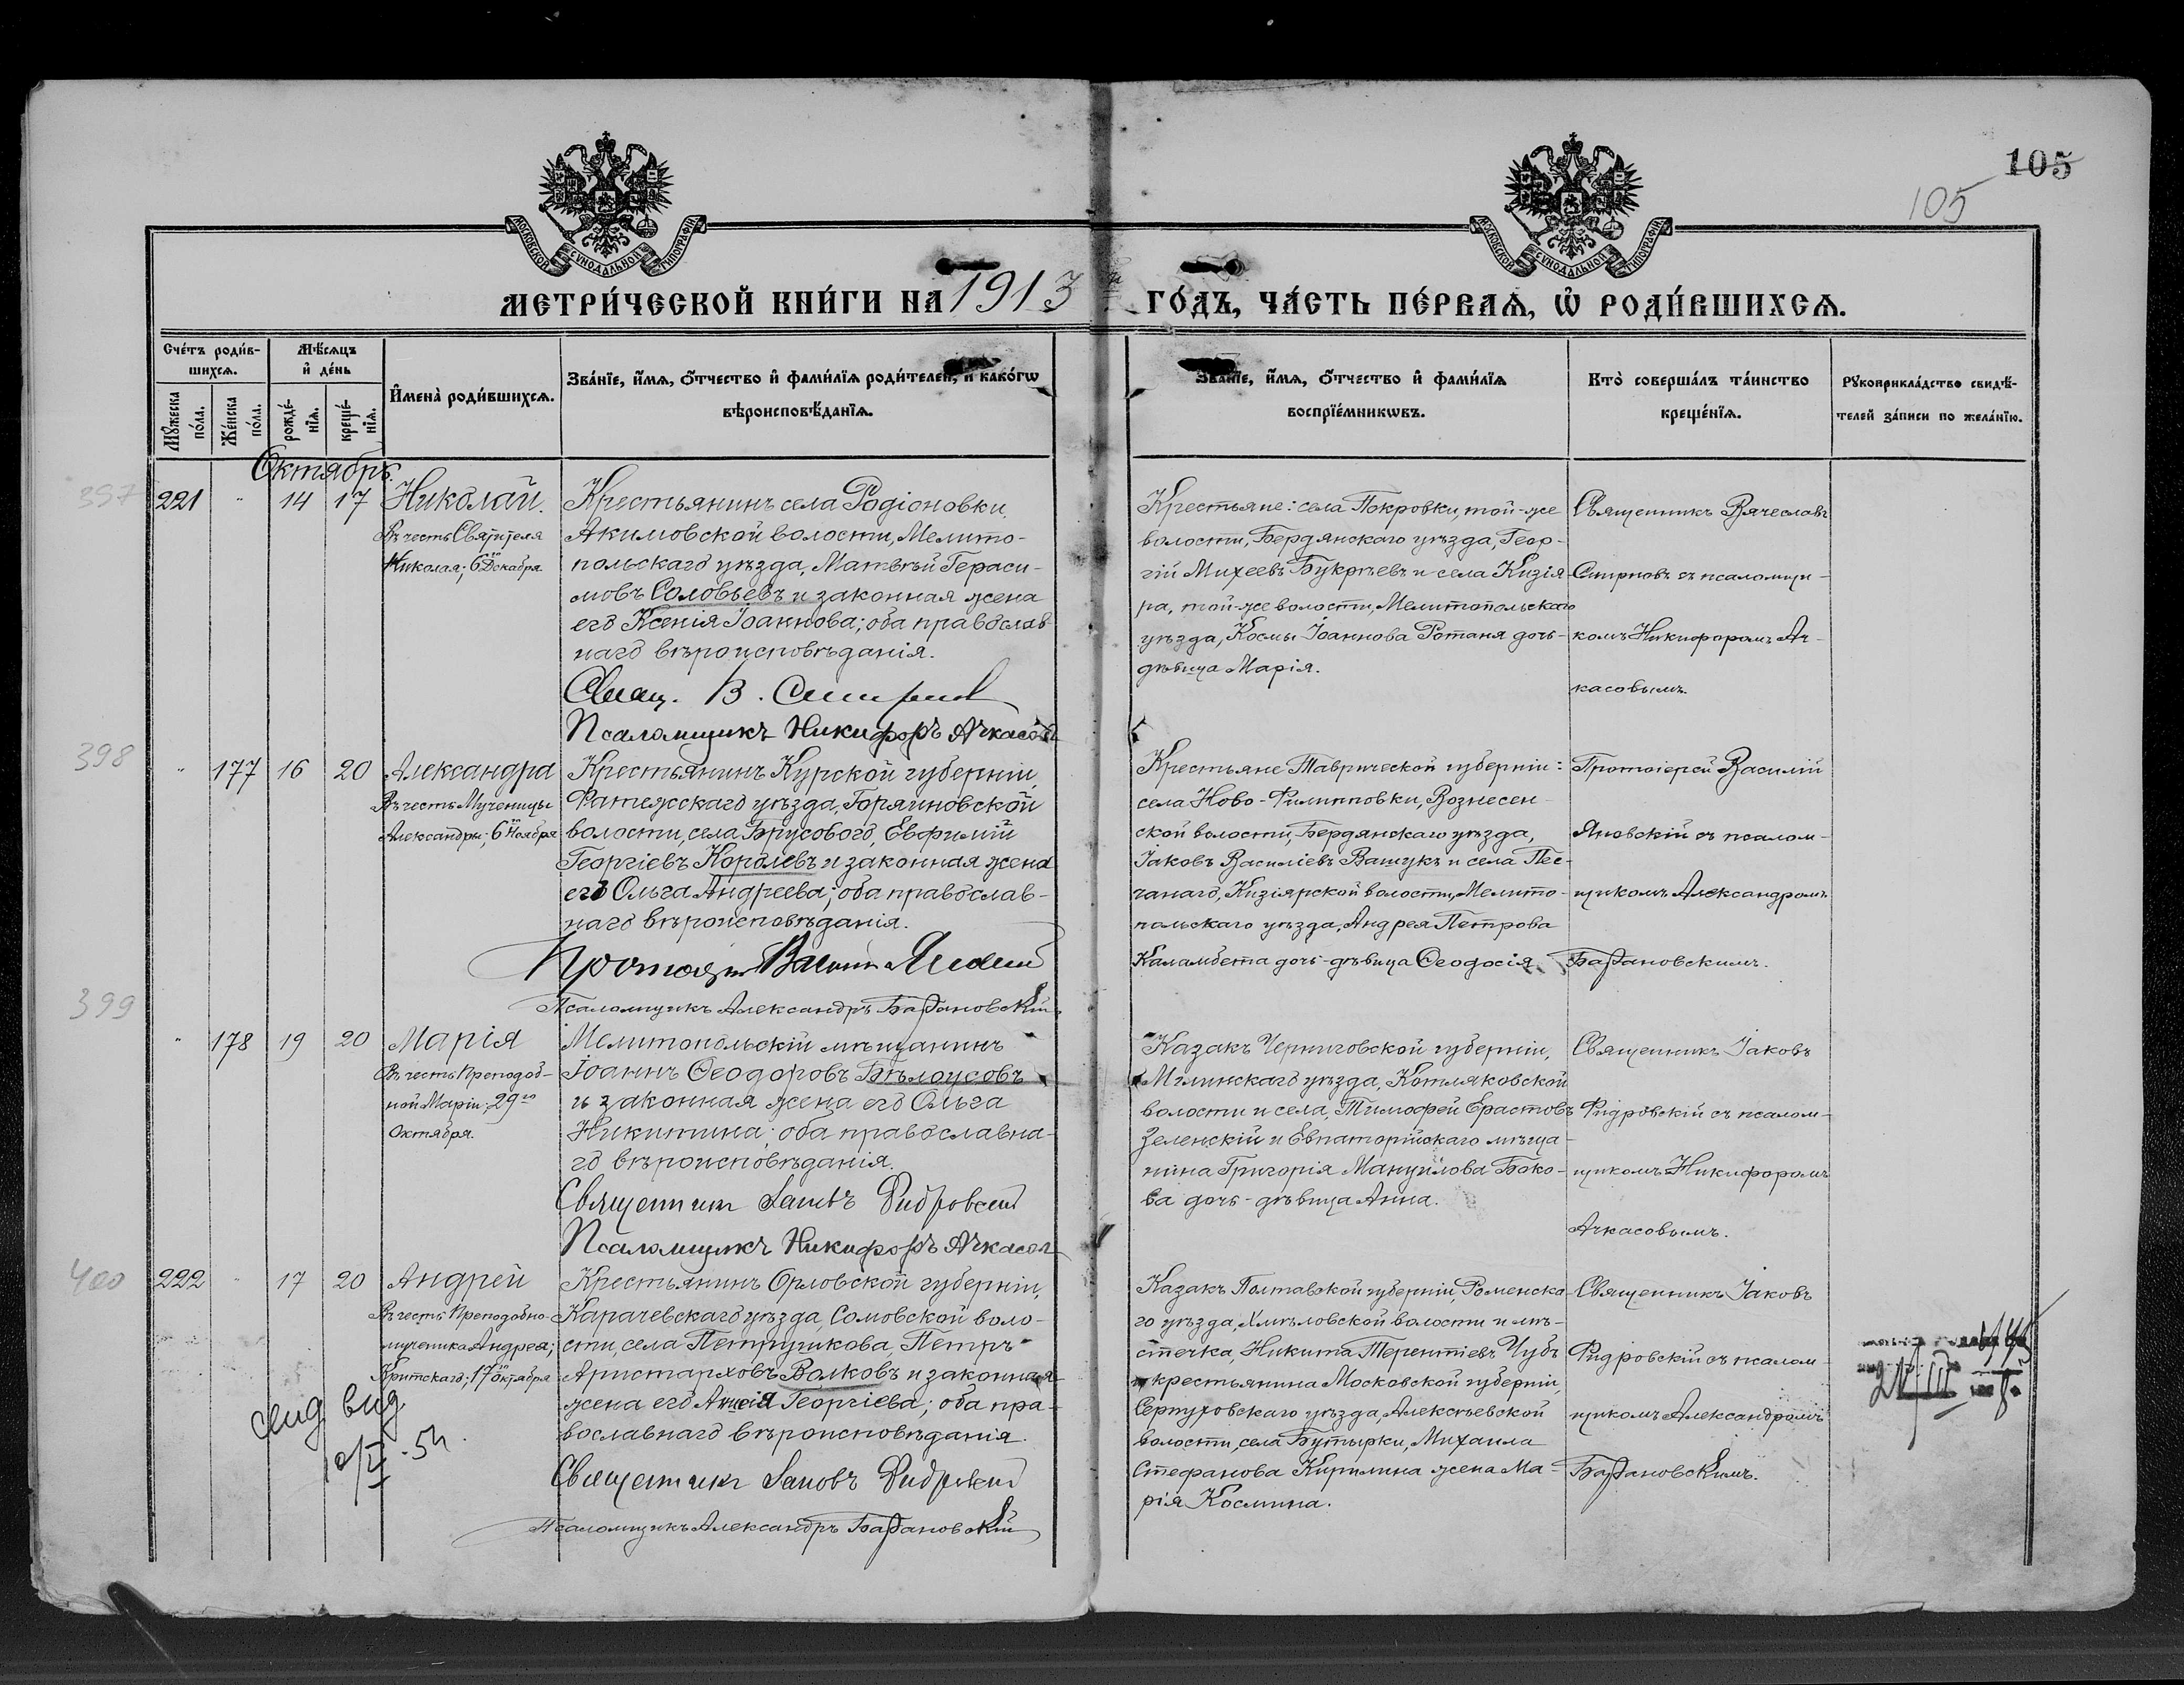 105
105
МОСКОВСКОЙ СѴНОДАЛЬНОЙ ТИПОГРАФІИ
МОСКОВСКОЙ СѴНОДАЛЬНОЙ ТИПОГРАФІИ
МЕТРИ́ЧЕСКОЙ КНИ́ГИ НА 1913 й ГО́ДЪ, ЧА́СТЬ ПЕ́РВАѦ, Ѡ҆ РОДИ́ВШИХСѦ.
Сче́тъ роди́в-
шихсѧ.
Мꙋ́жеска
по́ла.
Же́нска
по́ла.
Мѣ́сѧцъ
и҆ де́нь
рожде́-
нїѧ.
креще́-
нїѧ.
И҆мена̀ роди́вшихсѧ.
Зва́нїе, и҆́мѧ, ѻ҆́тчество и҆ фами́лїѧ роди́телей, и҆ како́гѡ
вѣроисповѣ́данїѧ.
Зва́нїе, и҆́мѧ, ѻ҆́тчество и҆ фами́лїѧ
воспрїе́мникѡвъ.
Кто̀ соверша́лъ та́инство
креще́нїѧ.
Рꙋкоприкла́дство свидѣ́-
телей за́писи по жела́нїю.
Октябрь.
397
221 " 14 17 Николай.
Въ честь Святителя
Николая; 6го Декабря
Крестьянинъ села Родіоновки,
Акимовской волости, Мелито-
польскаго уѣзда, Матвѣй Гераси-
мовъ Соловьевъ и законная жена
его Ксенія Іоаннова; оба православ
наго вѣроисповѣданія.
Свящ. В. Смирнов
Псаломщикъ Никифоръ Ачкасовъ
Крестьяне: села Покровки, той-же
волости, Бердянскаго уѣзда, Геор-
гій Михеевъ Букрѣевъ и села Кизія-
ра, той-же волости, Мелитопольскаго
уѣзда, Космы Іоаннова Ротаня дочь-
дѣвица Марія.
Священникъ Вячеславъ
Смирновъ съ псаломщи-
комъ Никифоромъ Ач-
касовымъ.
398
" 177 16 20 Александра
Въ честь Мученицы
Александры; 6го Ноября
Крестьянинъ Курской губерніи,
Фатежскаго уѣзда, Горяиновской
волости, села Брусового, Евфимій
Георгіевъ Королевъ и законная жена
его Ольга Андреева; оба православ-
наго вѣроисповѣданія.
Протоіер Василій Яновскій
Псаломщикъ Александръ Бафановскій
Крестьяне Таврической губерніи:
села Ново-Филипповки, Вознесен-
ской волости, Бердянскаго уѣзда,
Іаковъ Василіевъ Ващукъ и села Пес-
чанаго, Кизіярской волости, Мелито-
польскаго уѣзда, Андрея Петрова
Каламбета дочь-дѣвица Ѳеодосія
Протоіерей Василій
Яновскій съ псалом-
щикомъ Александромъ
Бафановскимъ.
399
" 178 19 20 Марія
Въ честь Преподоб-
ной Маріи; 29го
Октября.
Мелитопольскій мѣщанинъ
Іоаннъ Ѳеодоровъ Бѣлоусовъ
и законная жена его Ольга
Никитина; оба православна-
го вѣроисповѣданія.
Священник Іаковъ Фидровскій
Псаломщикъ Никифоръ Ачкасов
Казакъ Черниговской губерніи,
Мглинскаго уѣзда, Котляковской
волости и села, Тимофей Ерастовъ
Зеленскій и Евпаторійскаго мѣща-
нина Григорія Мануйлова Боко-
ва дочь-дѣвица Анна.
Священникъ Іаковъ
Фидровскій съ псалом-
щикомъ Никифоромъ
Ачкасовымъ.
400
222 " 17 20 Андрей
Въ честь Преподобно-
мученика Андрея,
Критскаго; 17го Октября
Крестьянинъ Орловской губерніи,
Карачевскаго уѣзда, Сомовской воло-
сти, села Петрушкова, Петръ
Аристарховъ Волковъ и законная
жена его Георгіева; оба пра-
вославнаго вѣроисповѣданія.
Священникъ Іаковъ Фидровскій
Псаломщикъ Александръ Бафановскій
Казакъ Полтавской губерніи, Роменска-
го уѣзда, Хмѣловской волости и мѣ-
стечка, Никита Терентіевъ Чубъ
и крестьянина Московской губерніи,
Серпуховскаго уѣзда, Алексѣевской
волости, села Бутырки, Михаила
Стефанова Кирилина жена Ма-
рія Космина.
Священникъ Іаковъ
Фидровскій съ псалом-
щикомъ Александромъ
Бафановскимъ.